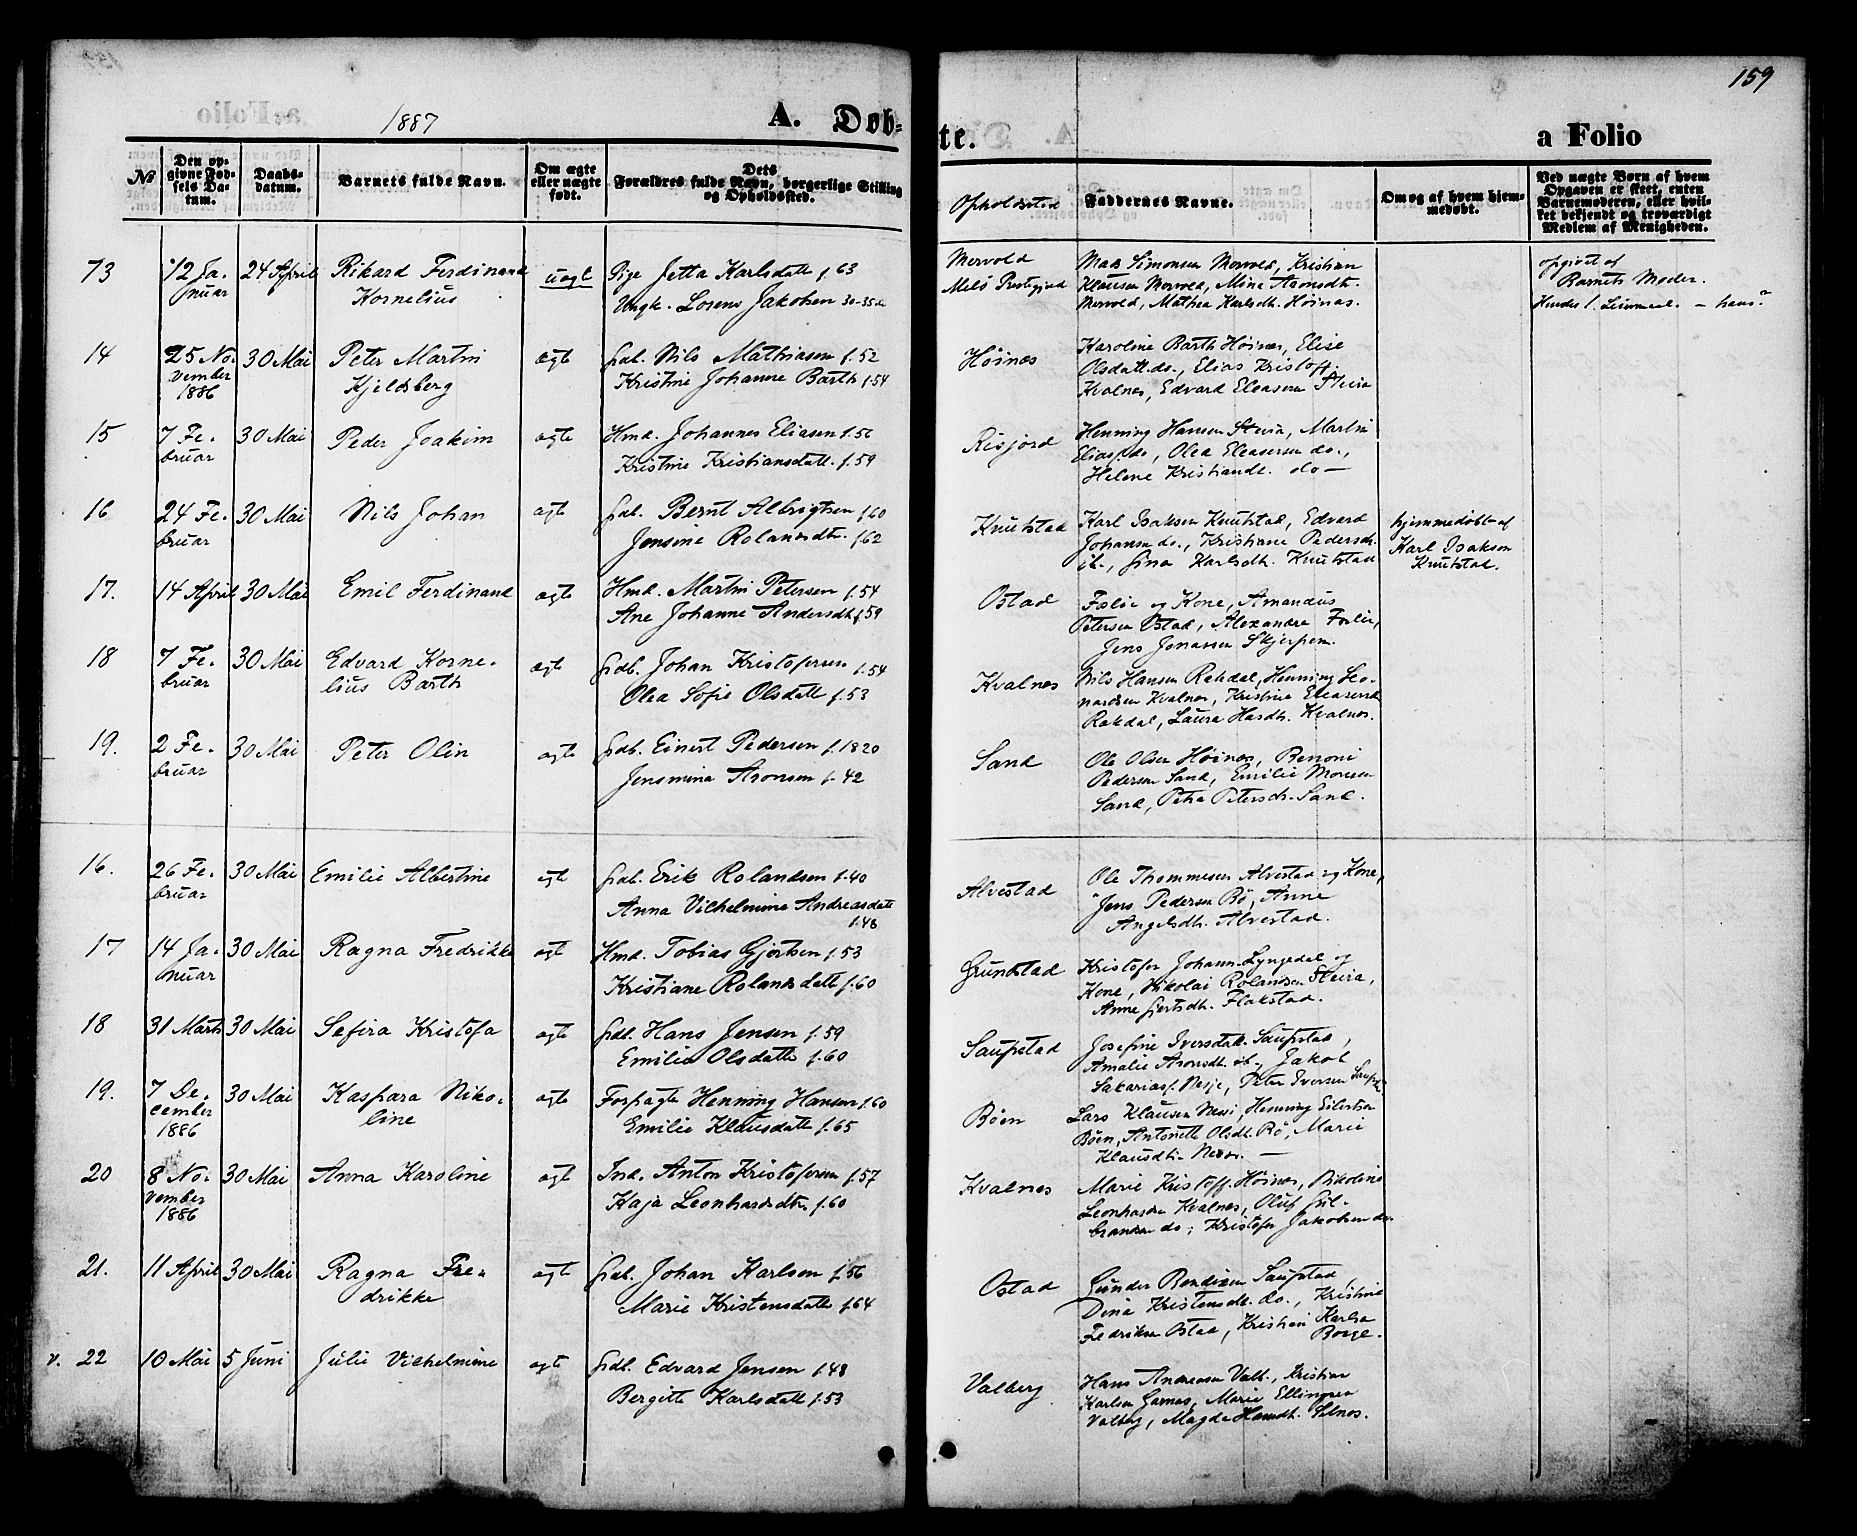 159
1887
A. Døb-
te.
a Folio
№
Den op-
givne Fød-
sels Da-
tum.
Daabs-
datum.
Barnets fulde Navn.
Om ægte
eller uægte
født.
Dets
Forældres fulde Navn, borgerlige Stilling
og Opholdssted.
Opholdssted
Faddernes Navne.
Om og af hvem hjem-
medøbt.
Ved uægte Børn af hvem
Opgaven er skeet, enten
Barnemoderen, eller hvil-
ket bekjendt og troværdigt
Medlem af Menigheden.
13
12 Ja-
nuar
24 April
Rikard Ferdinand
Kornelius
uægt
Pige Jetta Karlsdatt f. 63
Ungk. Lorens Jakobsen 30-35
Mervold
Melø Prestegjeld
Mads Simonsen Mervold, Kristian
Klausen Mervold, Mine
Mervold, Mathea Karlsdt. Høinæs.
opgivet af
Barnets Moder.
Hendes 1. Leiermaal. - hans?
14
25 No-
vember
1886
30 Mai
Peter Martin
Kjeldsberg
ægte
Nils Mathiasen f. 52
Kristine Johanne Barth f. 54
Høinæs
Karoline Barth Høinæs, Elise
Olsdatt. do., Elias Kristoff.
Kvalnes, Edvard Eleasersen Steira
15
7 Fe-
bruar
30 Mai
Peder Joakim
ægte
Hmd. Johannes Eliasen f. 56
Kristine Kristiansdatt. f. 59
Risjord
Henning Hansen Steira, Martin
Elias. do, Olea Eleasersen do.,
Helene Kristiandt. do —
16
24 Fe-
bruar
30 Mai
Nils Johan
ægte
Bernt Albrigtsen f. 60
Jensine Rolandsdtr. f. 62
Knutstad
Karl Isaksen Knutstad, Edvard
Johansen do., Kristiane Pedersdt.
ib., Jina Karlsdt. Knutstad
hjemmedøbt af
Karl Isaksen
Knutstad.
17.
14 April
30 Mai
Emil Ferdinand
ægte
Hmd. Martin Petersen f. 54
Ane Johanne Andersdtr f. 59
Ostad
Forældre og Kone, Amandus
Petersen Ostad, Alexandra
Jens Jonassen Skjerpen.
18
7 Fe-
bruar
30 Mai
Edvard Korne-
lius Barth
ægte
Gdb. Johan Kristofersen f. 54
Olea Sofie Olsdatt f. 53
Kvalnes
Nils Hansen Rekdal, Henning Leo-
nardsen Kvalnes, Kristine Eleasersd.
Rekdal, Laura Hansdt. Kvalnes.
19.
2 Fe-
bruar
30 Mai
Peter Olin
ægte
Gdb. Einert Pedersen f. 1820
Jensmina Aronsen f. 42
Sand
Ole Olsen Høinæs, Benoni
Pedersen Sand, Emilie Monsen
Sand, Petra Petersdt. Sand.
16.
26 Fe-
bruar
30 Mai
Emilie Albertine
ægte
Gdb. Erik Rolandsen f. 40
Anna Vilhelmine Andreasdatt
f. 48
Alvestad
Ole Thommesen Alvestad og Kone,
Jens Pedersen Bø, Anne
Angelsdt. Alvestad.
17
14 Ja-
nuar
30 Mai
Ragna Fredrikke
ægte
Hmd. Tobias Gjertsen f. 53
Kristiane Rolandsdatt f. 60
Grundstad
Kristofer Johann. Lyngedal og
Kone, Nikolai Rolandsen Steira,
Anne Gjertsdt. Flakstad.
18
31 Marts
30 Mai
Sefira Kristofa
ægte
Gdb. Hans Jensen f. 59
Emilie Olsdatt f. 60
Saupstad
Josefine Iversdatt. Saupstad,
Amalie Aronsdt. ib., Jakob
Sakarias. Nesje, Peter Iversen Saupst.
19.
7 De-
cember
1886
30 Mai
Kaspara Niko-
line
ægte
Forpagte Henning Hansen f. 60
Emilie Klausdatt f. 65
Bøen
Lars Klausen Nesje, Henning Eilertsen
Bøen, Antonette Olsdt. Bø, Marie
Klausdt. —
20
8 No-
vember
1886
30 Mai
Anna Karoline
ægte
Ind. Anton Kristofersen f. 57
Kaja Leonhardsdtr f. 60
Kvalnes
Marie Kristoff. Høinæs, Nikoline
Leonhardsen Kvalnes, Oluf Gul-
brandsen do., Kristofer Jakobsen do.
21.
11 April
30 Mai
Ragna Fre-
drikke
ægte
Gdb. Johan Karlsen f. 56
Marie Kristensdatt f. 64
Ostad
Gunder Bendixen Saupstad,
Dina Kristensdt. do., Kristine
Fredriksen Ostad, Kristian Karlsen
Borge.
v. 22
10 Mai
5 Juni
Julie Vilhelmine
ægte
Gdb. Edvard Jensen f. 48
Bergitte Karlsdatt f. 53
Valberg
Hans Andreasen Valb., Kristian
Karlsen Garnæs, Marie Ellingsen
Valberg, Magda Hansdt.